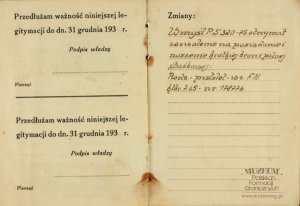 Przedłużam ważność niniejszej le-
gitymacji do dn. 31 grudnia 193 r.
Podpis władzy
Pieczęć
Przedłużam ważność niniejszej le-
gitymacji do dn. 31 grudnia 193 r.
Podpis władzy
Pieczęć
Zmiany:
P.S. 320 otrzymał
zezwolenie na posiadanie i
noszenie krótkiej broni palnej
służbowej:
pistolet F.N.
7.65 nr.
MUZEUM
Polskich
Formacji
Granicznych
www.muzeumsg.pl